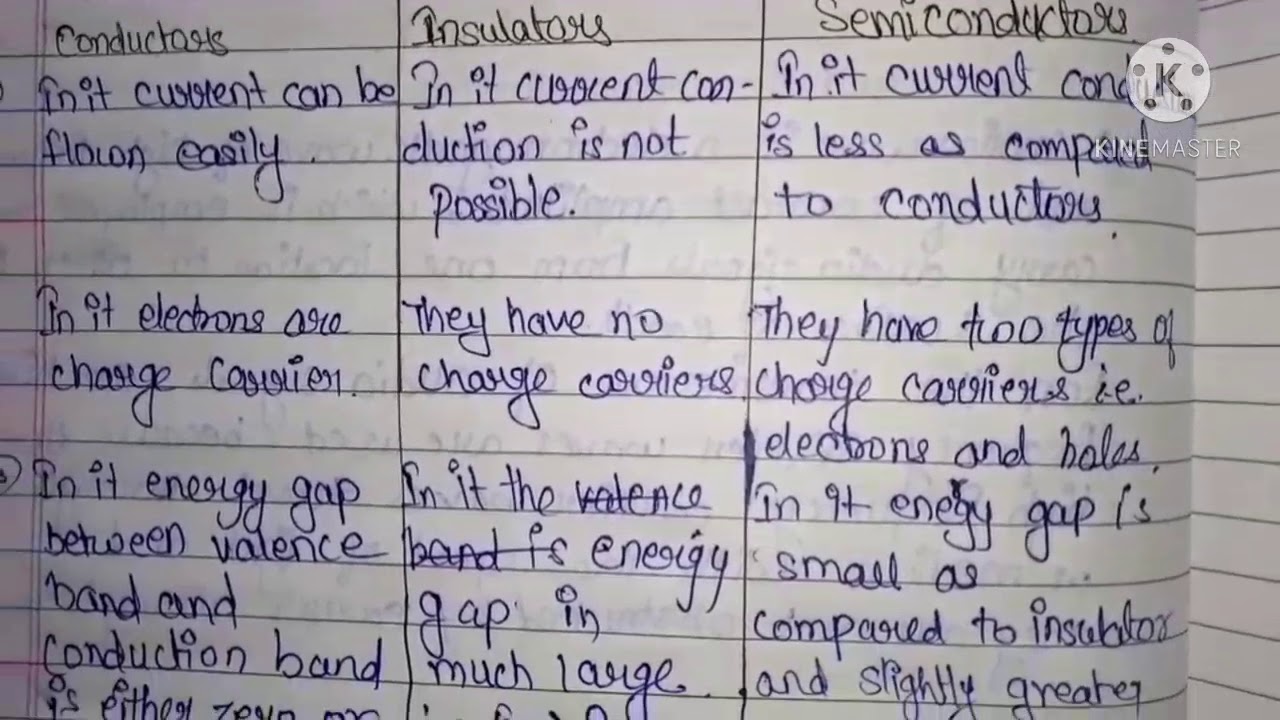 Conductors
Insulators
Semiconductors
In it current can be
flown easily.
In it current con-
duction is not
possible.
In it current cond
is less as compared
to conductors.
In it electrons are
charge carrier.
They have no
charge carriers.
They have too types of
charge carriers i.e.
electrons and holes.
In it energy gap
between valence
band and
conduction band
is either zero or
In it the valence
band is energy
gap in
much large
In it energy gap is
small as
compared to insulator
and slightly greater
K
KINEMASTER